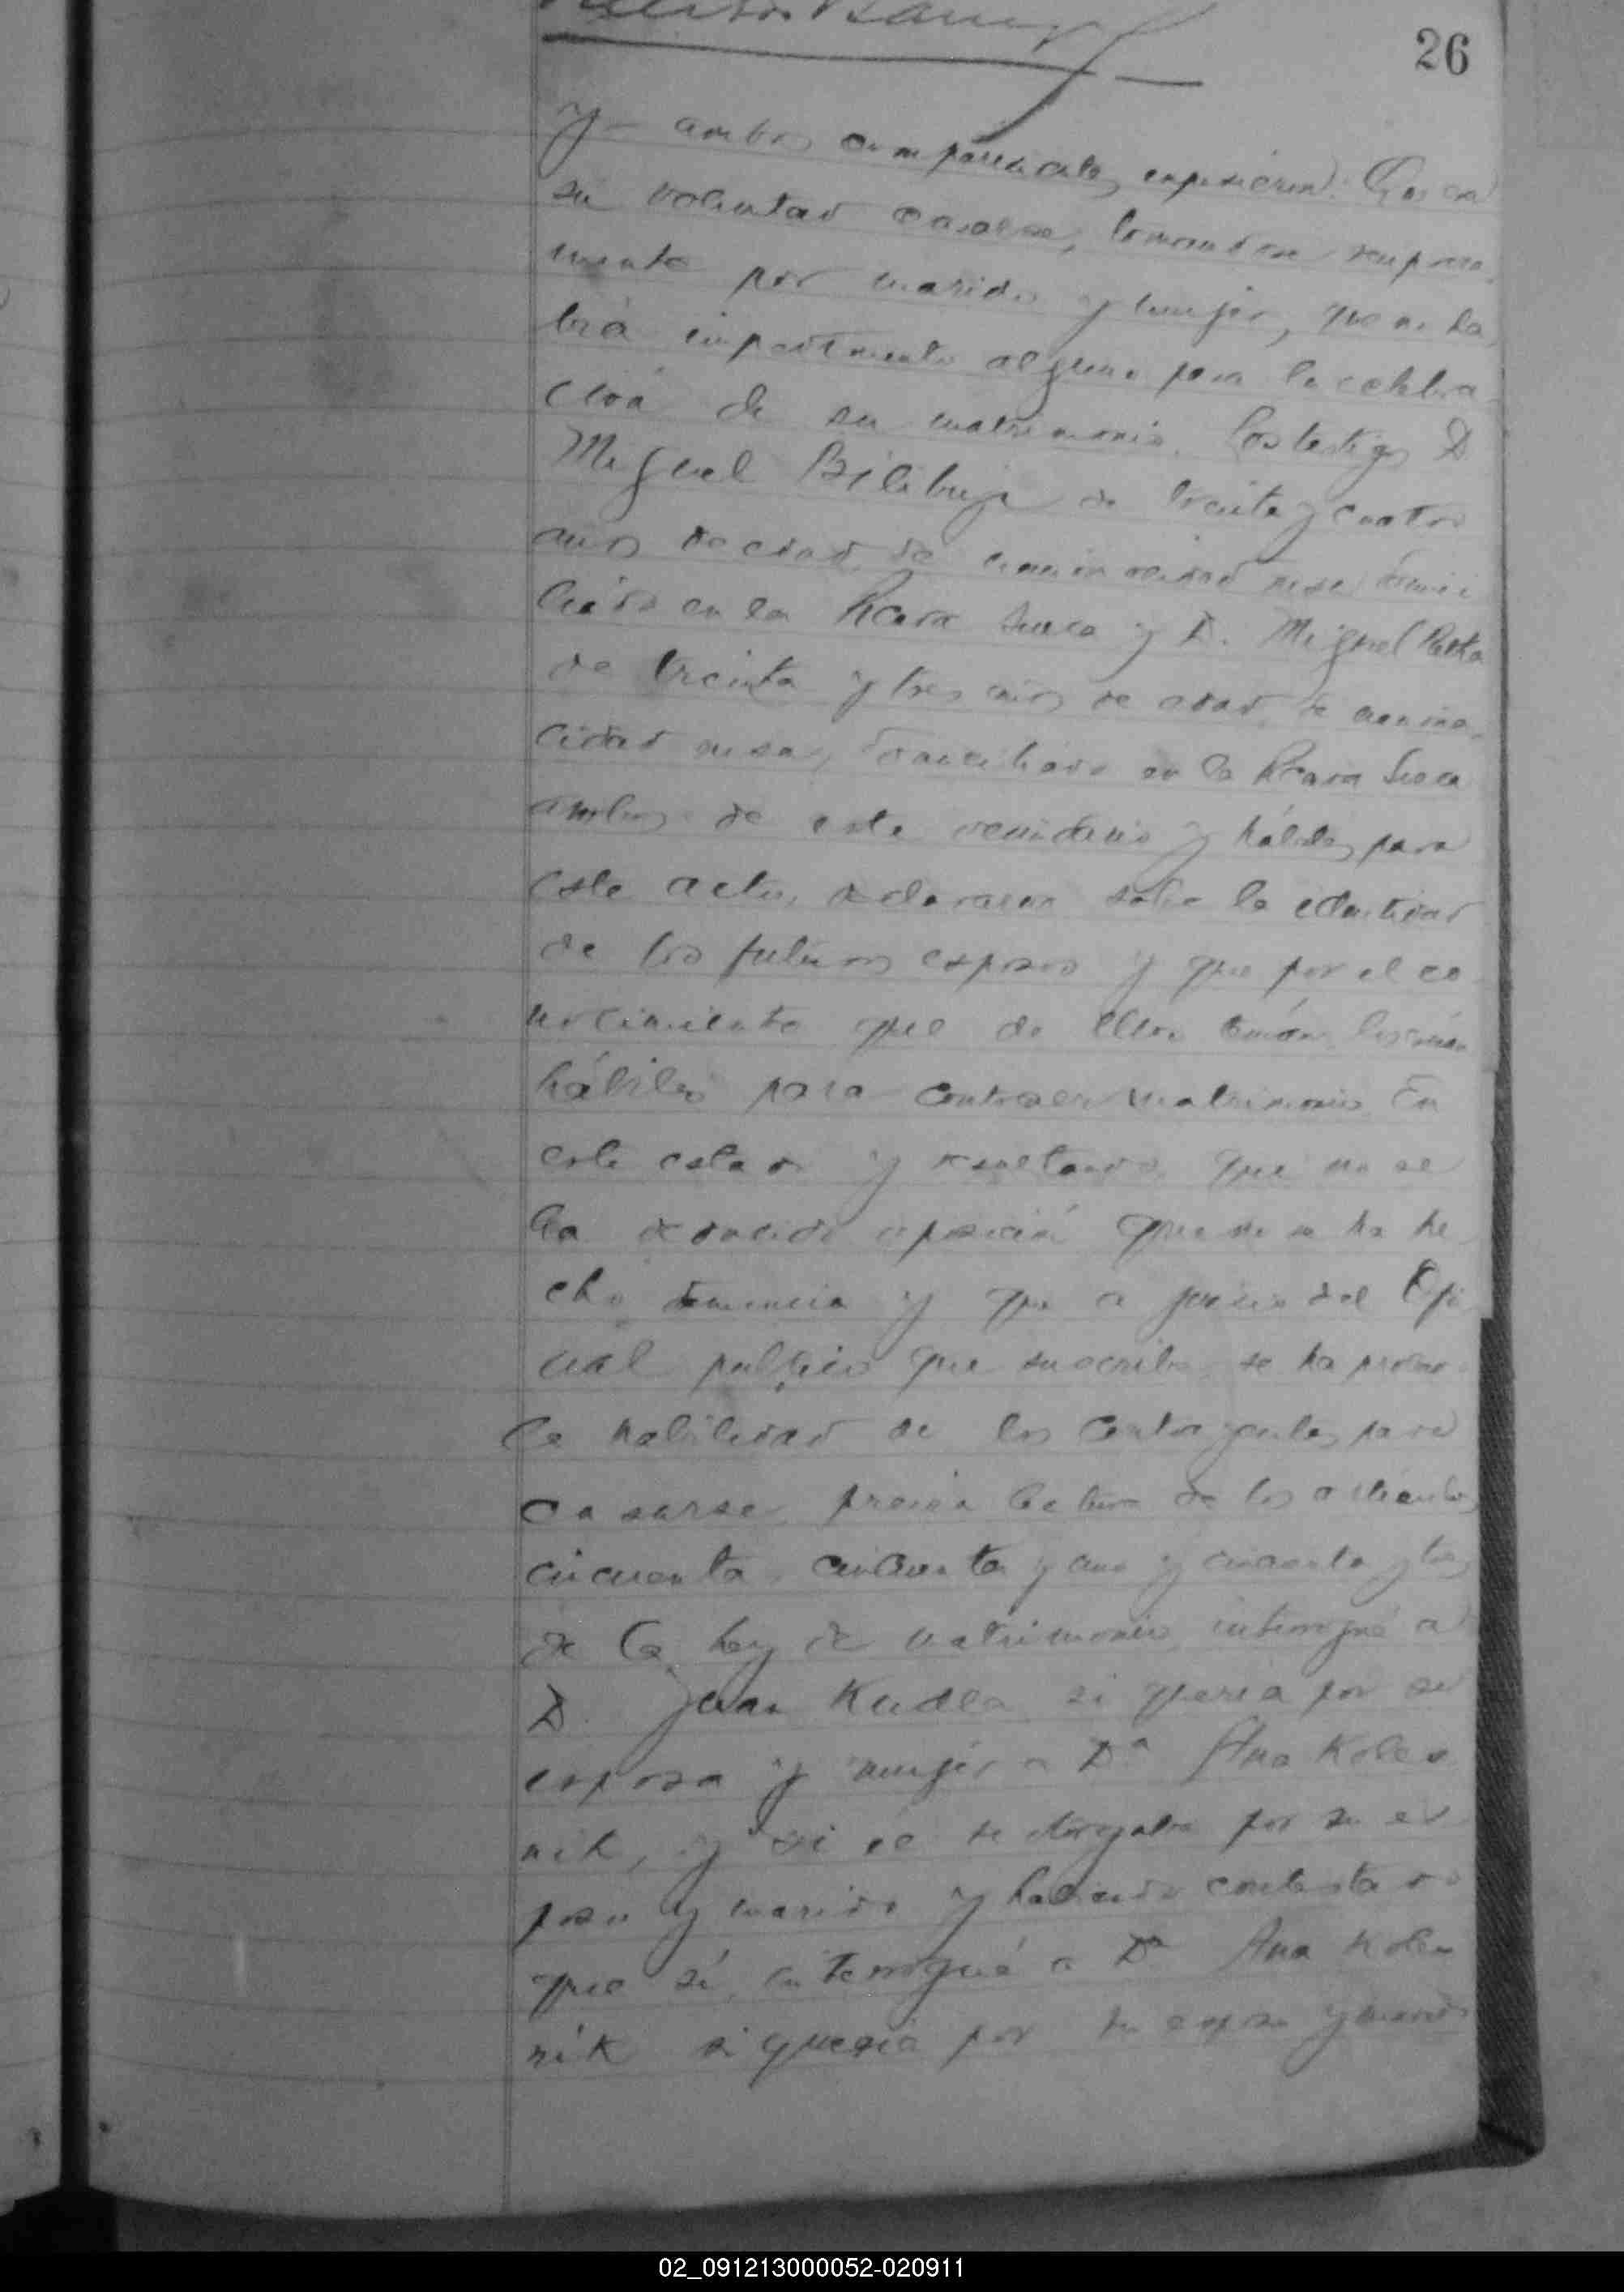 26
y ambos comparecientes expusieron: Que era
su voluntad casarse, tomandose recíproca
mente por marido y mujer, que no ha
bía impedimento alguno para la celebra
ción de su matrimonio. Los testigos D
Miguel de treinta y cuatro
años de edad, de nacionalidad rusa domici
liado en la Picara Sueca y D. Miguel
de treinta y tres años de edad, de naciona
lidad rusa, domiciliado en la Picara Sueca
ambos de este vecindario y hábiles para
este acto, declararon sobre la identidad
de los futuros esposos y que por el co
nocimiento que de ellos tenían, los creían
hábiles para contraer matrimonio. En
este estado y resultando que no se
ha deducido oposición que no se ha he
cho denuncia y que a juicio del Ofi
cial público que suscribe, se ha probado
la habilidad de los contrayentes para
casarse, previa lectura de los artículos
cincuenta, cincuenta y uno y cincuenta y tres
de la Ley de matrimonio, interrogué a
D. Juan Kudla si quería por su
esposa y mujer a Da. Ana Koles
nik, y si él se otorgaba por su es
poso y marido y habiendo contestado
que sí, interrogué a Da Ana Koles
nik si quería por su esposo y marido
02_091213000052-020911